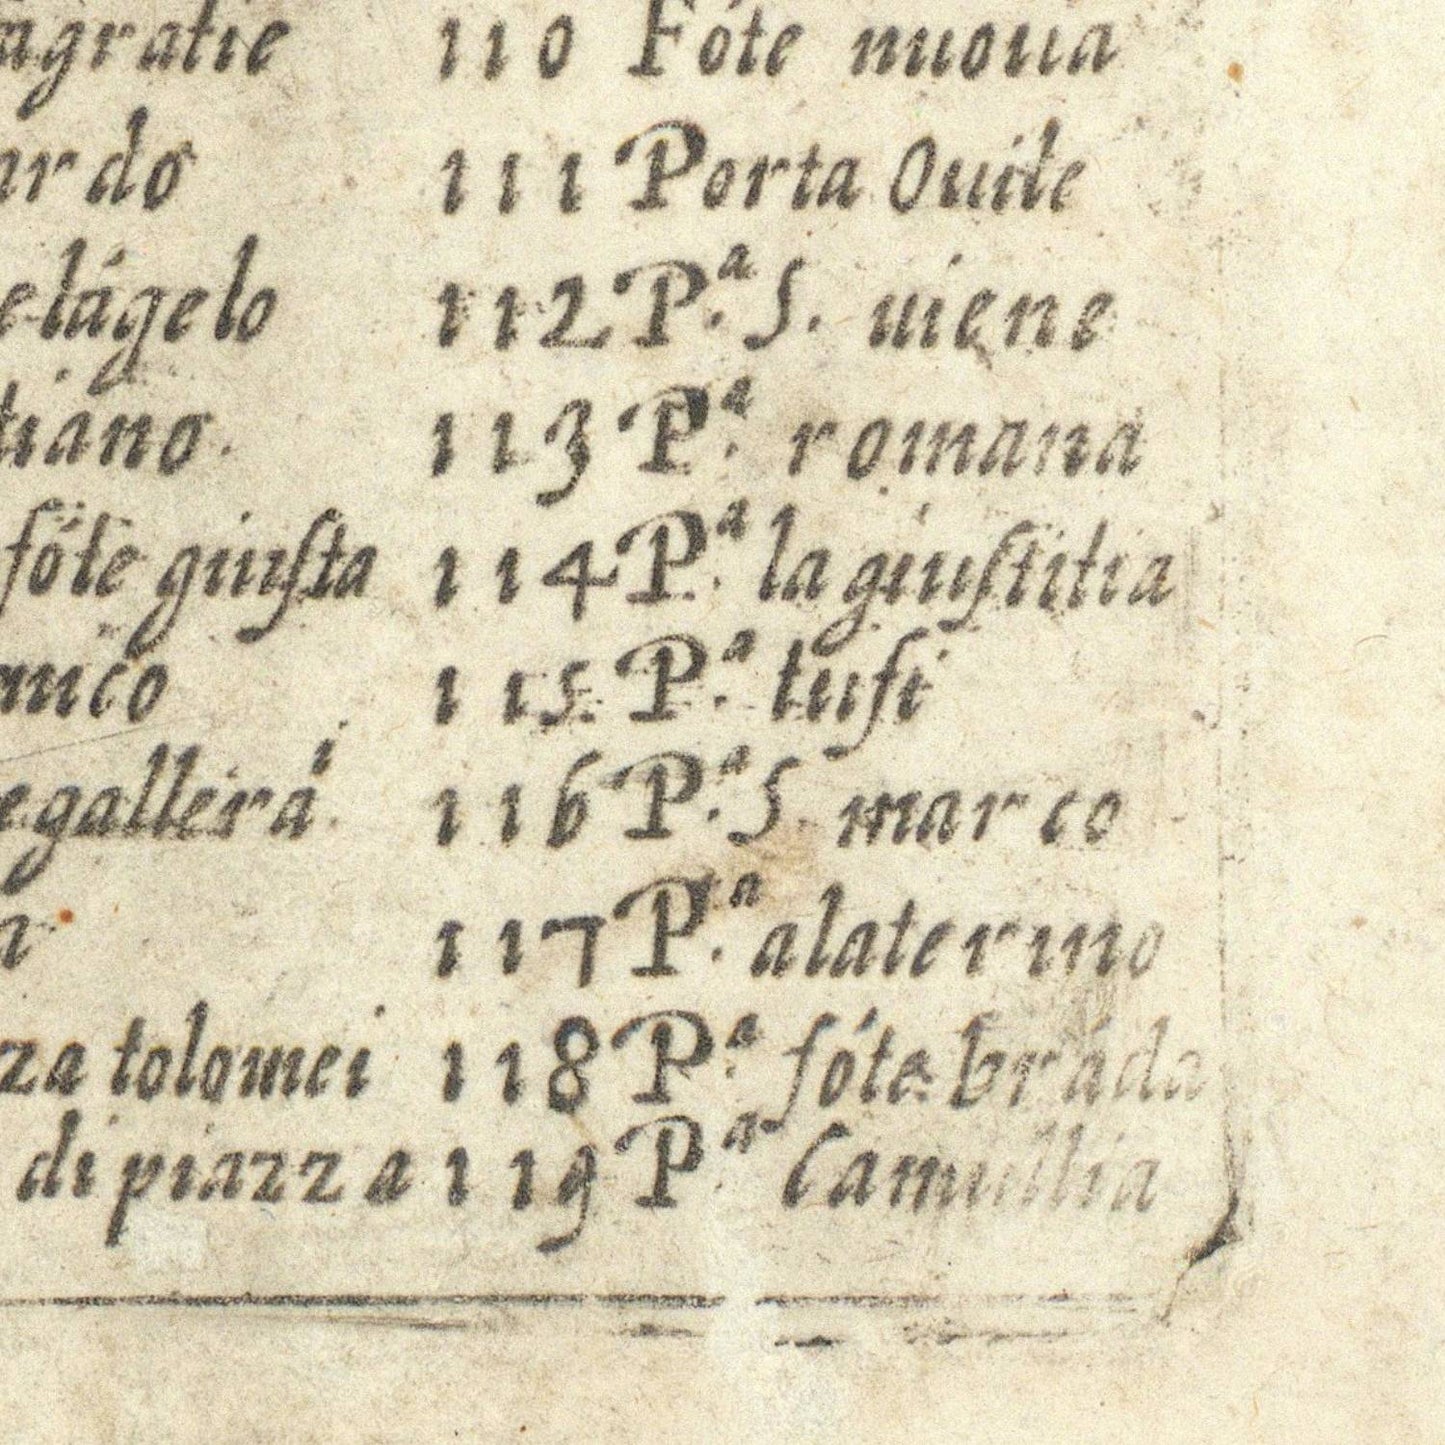 agratie 110 Fóte nuoua
ardo 111 Porta Ouile
elágelo 112 P.ª S. uiene
tiano. 113 P.ª romana
fóte giusta 114 P.ª la giustitia
nico 115 P.ª tufi
e gallerá i 116 P.ª S. marco
a 117 P.ª alaterino
zza tolomei 118 P.ª fóte bráda
di piazza 119 P.ª Camullia